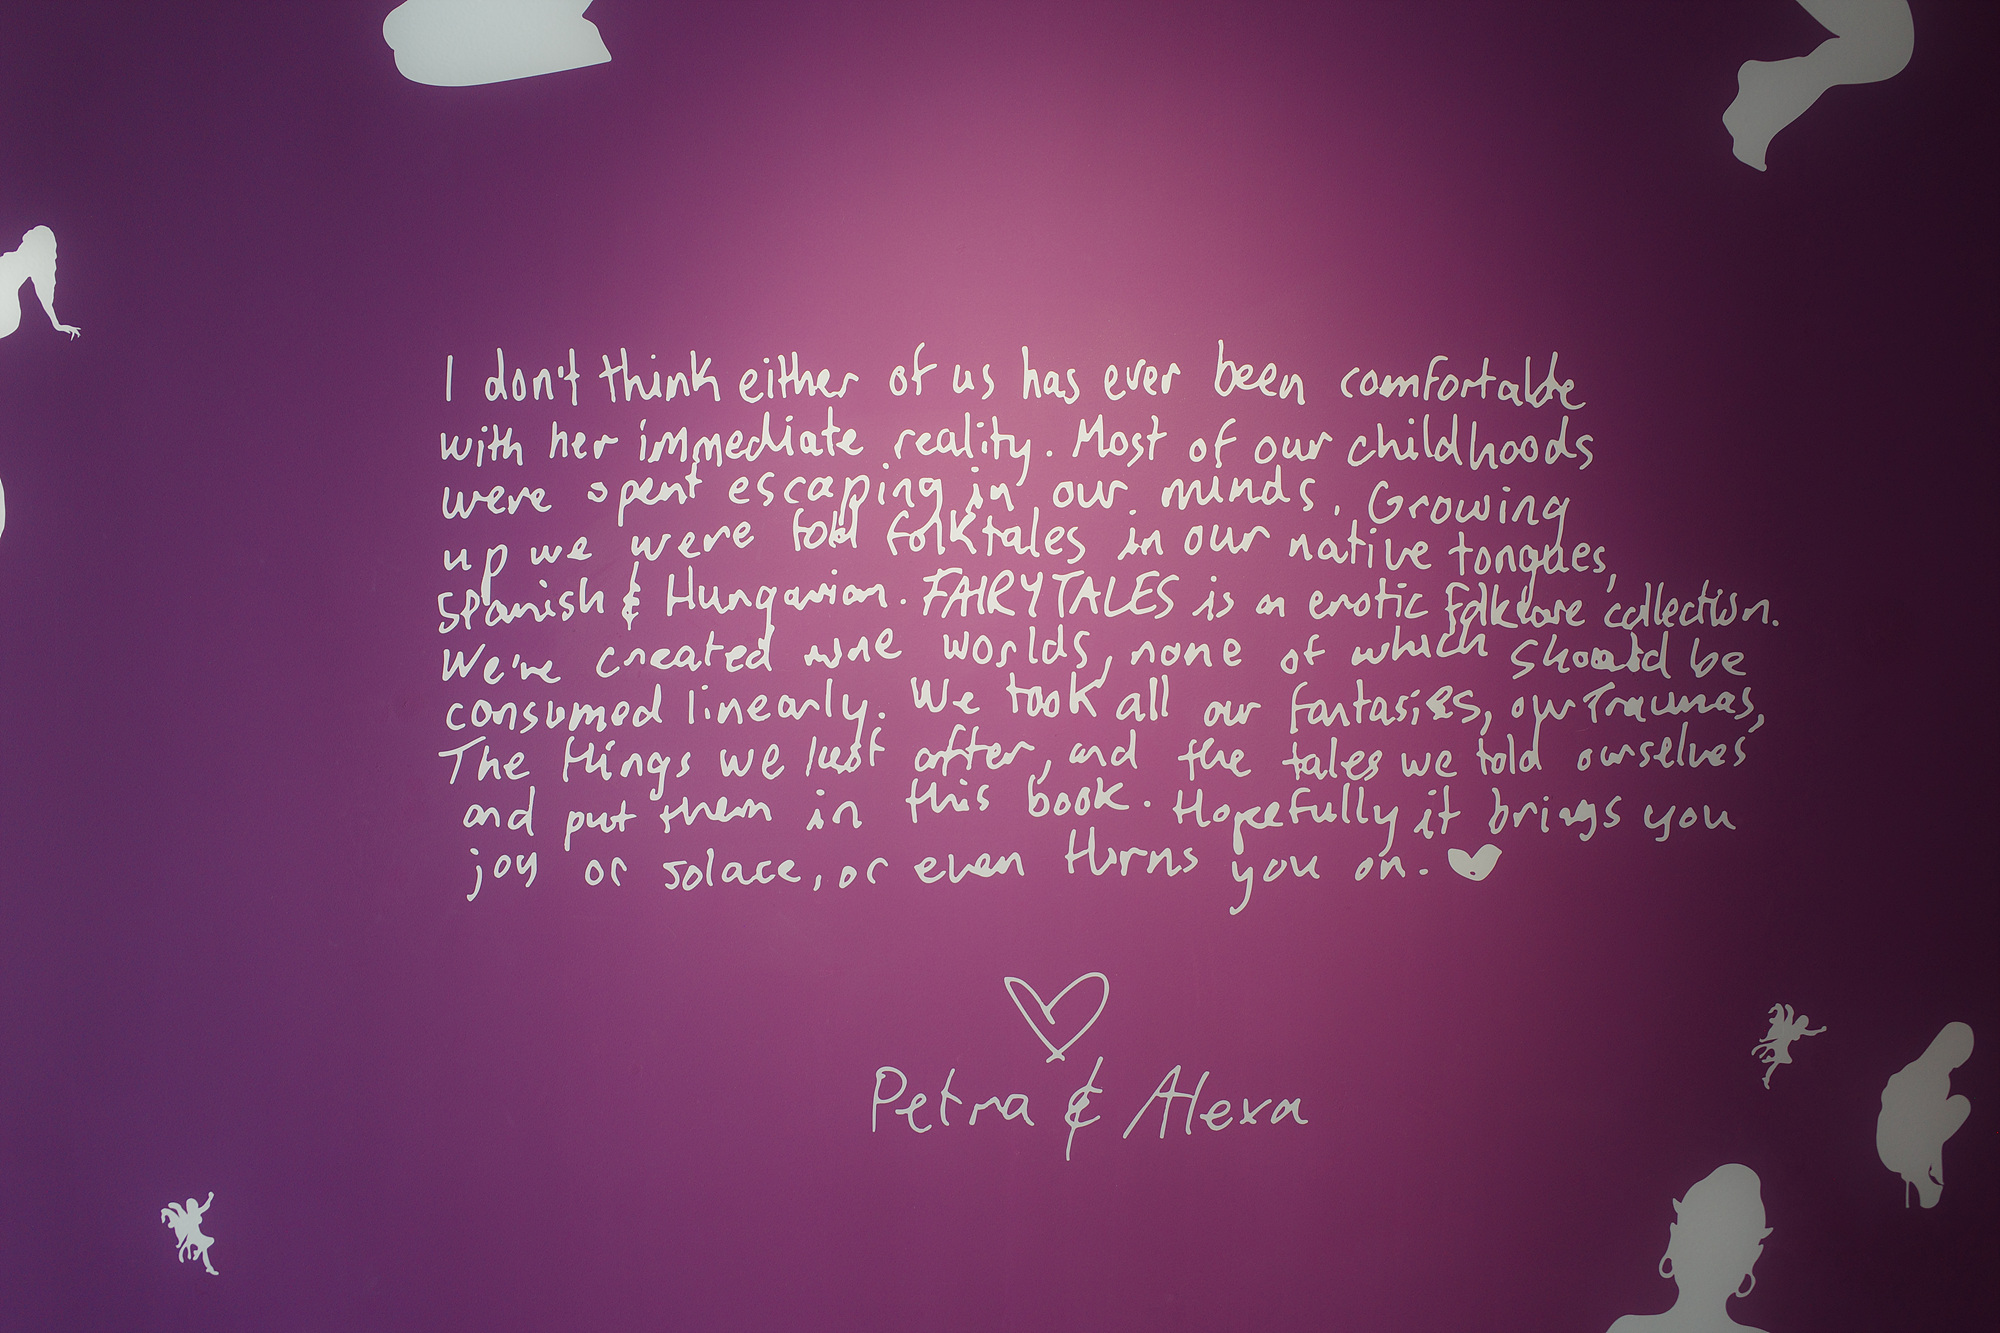 I don't think either of us has ever been comfortable
with her immediate reality. Most of our childhoods
were spent escaping in our minds. Growing
up we were told folktales in our native tongues,
Spanish & Hungarian. FAIRYTALES is an erotic folklore collection.
We've created nine worlds, none of which should be
consumed linearly. We took all our fantasies, our Traumas,
The things we lust after, and the tales we told ourselves
and put them in this book. Hopefully it brings you
joy or solace, or even turns you on. ♥
Petra & Alexa